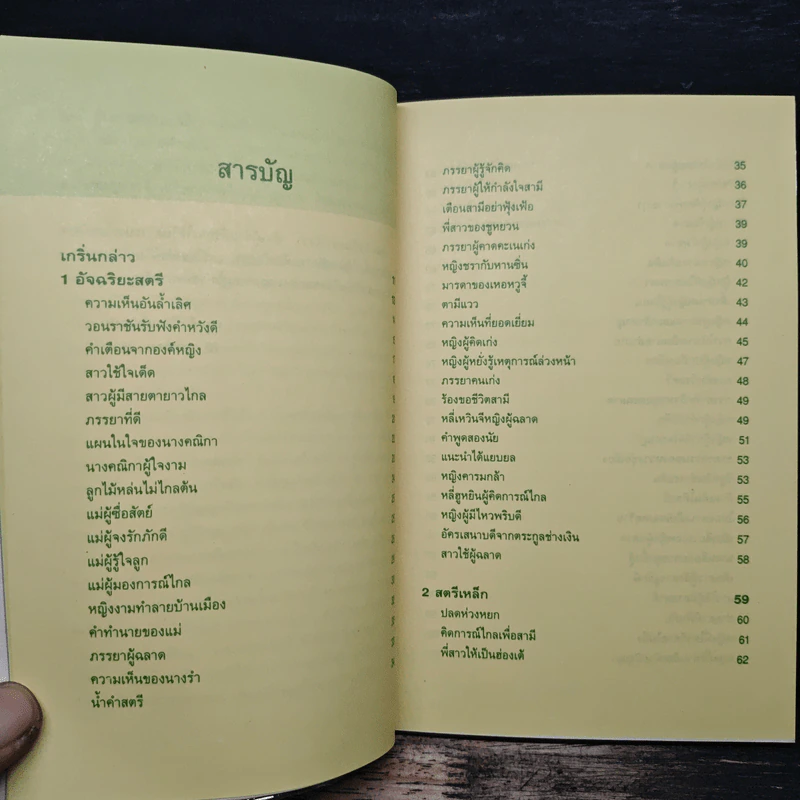 สารบัญ
เกริ่นกล่าว
1 อัจฉริยะสตรี
ความเห็นอันล้ำเลิศ
วอนราชันรับฟังคำหวังดี
คำเตือนจากองค์หญิง
สาวใช้ใจเด็ด
สาวผู้มีสายตายาวไกล
ภรรยาที่ดี
แผนในใจของนางคณิกา
นางคณิกาผู้ใจงาม
ลูกไม้หล่นไม่ไกลต้น
แม่ผู้ซื่อสัตย์
แม่ผู้จงรักภักดี
แม่ผู้รู้ใจลูก
แม่ผู้มองการณ์ไกล
หญิงงามทำลายบ้านเมือง
คำทำนายของแม่
ภรรยาผู้ฉลาด
ความเห็นของนางรำ
น้ำคำสตรี
ภรรยาผู้รู้จักคิด 35
ภรรยาผู้ให้กำลังใจสามี 36
เตือนสามีอย่าฟุ้งเฟ้อ 37
พี่สาวของชูหยวน 39
ภรรยาผู้คาดคะเนเก่ง 39
หญิงชรากับหานซิ่น 40
มารดาของเหอหวูจี้ 42
ตามีแวว 43
ความเห็นที่ยอดเยี่ยม 44
หญิงผู้คิดเก่ง 45
หญิงผู้หยั่งรู้เหตุการณ์ล่วงหน้า 47
ภรรยาคนเก่ง 48
ร้องขอชีวิตสามี 49
หลี่เหวินจีหญิงผู้ฉลาด 49
คำพูดสองนัย 51
แนะนำได้แยบยล 53
หญิงคารมกล้า 53
หลี่ฮูหยินผู้คิดการณ์ไกล 55
หญิงผู้มีไหวพริบดี 56
อัครเสนาบดีจากตระกูลช่างเงิน 57
สาวใช้ผู้ฉลาด 58
2 สตรีเหล็ก 59
ปลดห่วงหยก 60
คิดการณ์ไกลเพื่อสามี 61
พี่สาวให้เป็นฮ่องเต้ 62